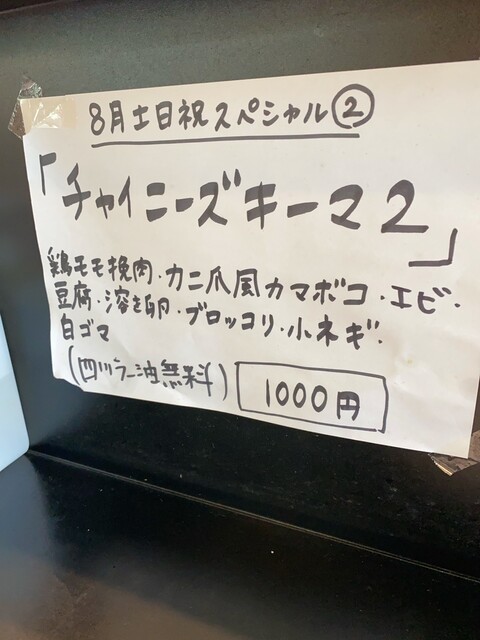 8月土日祝スペシャル②
「チャイニーズキーマ2」
鶏モモ挽肉・カニ爪風カマボコ・エビ・
豆腐・溶き卵・ブロッコリ・小ネギ・
白ゴマ
(四川ラー油無料) 1000円